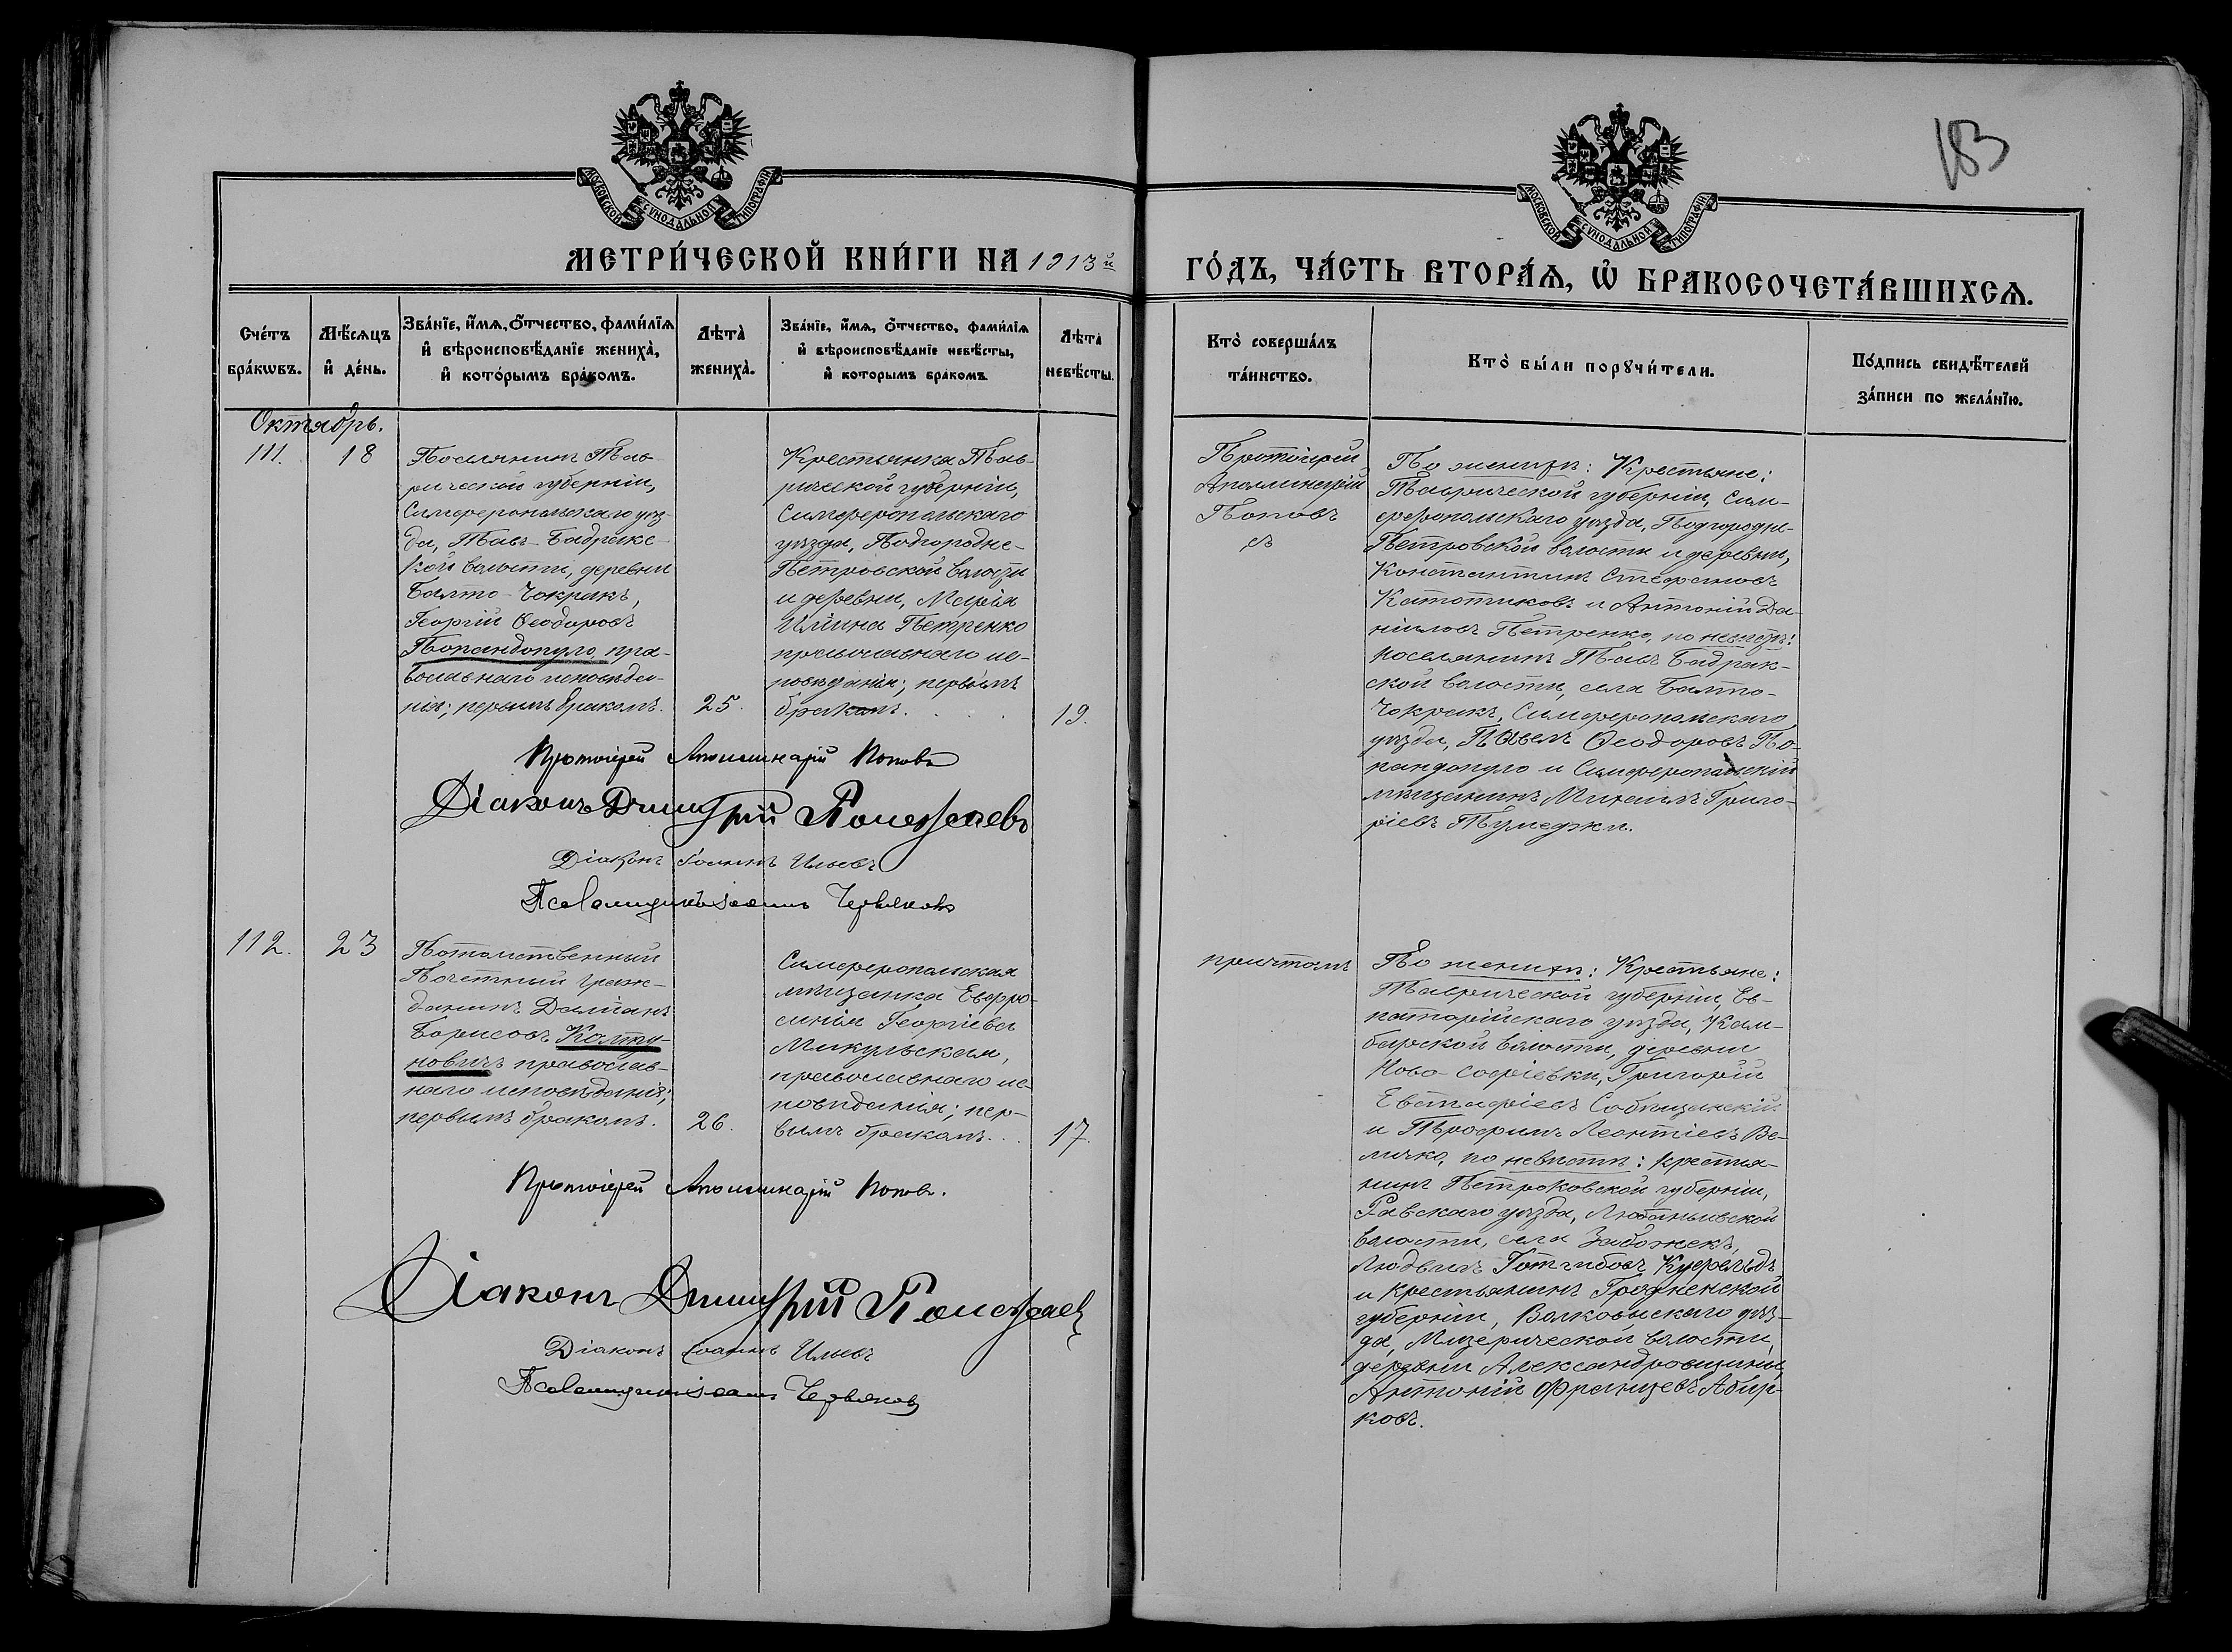 183
МОСКОВСКОЙ СѴНОДАЛЬНОЙ ТИПОГРАФІИ
МОСКОВСКОЙ СѴНОДАЛЬНОЙ ТИПОГРАФІИ
МЕТРИ́ЧЕСКОЙ КНИ́ГИ НА 1913й
ГО́ДЪ, ЧА́СТЬ ВТОРА́Ѧ, Ѡ҆ БРАКОСОЧЕТА́ВШИХСѦ.
Сче́тъ
бра́кѡвъ.
Мѣ́сѧцъ
и҆ де́нь.
Зва́нїе, и҆́мѧ, ѻ҆́тчество, фами́лїѧ
и҆ вѣроисповѣ́данїе жениха̀,
и҆ кото́рымъ бра́комъ.
Лѣ́та̀
жениха̀.
Зва́нїе, и҆́мѧ, ѻ҆́тчество, фами́лїѧ
и҆ вѣроисповѣ́данїе невѣ́сты,
и҆ которымъ бра́комъ
Лѣ́та
невѣ́сты.
Кто̀ соверша́лъ
та́инство.
Кто̀ бы́ли порꙋчи́тели.
По́дпись свидѣ́телей
за́писи по жела́нїю.
Октябрь.
111.
18
Поселянинъ Тав-
рической губерніи,
Симферопольскаго уѣз-
да, Тавъ-Бадракс-
кой волости, деревни
Балто-Чокракъ,
Георгій Ѳеодоровъ
Попандопуло, пра-
вославнаго исповѣда-
нія; первымъ бракомъ.
25.
Крестьянка Тав-
рической губерніи,
Симферопольскаго
уѣзда, Подгородне-
Петровской волости
и деревни, Марія
Ильина Петренко
православнаго ис-
повѣданія; первымъ
бракомъ.
19.
Протоіерей
Аполлинарій
Поповъ
съ
По женихѣ: Крестьяне:
Таврической губерніи, Сим-
феропольскаго уѣзда, Подгородне-
Петровской волости и деревни,
Константинъ Стефановъ
Кототиковъ и Антоній Да-
ніиловъ Петренко, по невѣстѣ:
поселянинъ Тавъ Бадрак-
ской волости, села Балто-
Чокракъ, Симферопольскаго
уѣзда, Павелъ Ѳеодоровъ По-
пандопуло и Симферопольскій
мѣщанинъ Михаилъ Григо-
ріевъ Тумеджи.
Протоіерей Аполлинарій Поповъ
Діаконъ Димитрій Полежаевъ
Діаконъ Іоаннъ Ильевъ
Псаломщикъ Іоаннъ Червяковъ
112.
23
Потомственный
Почетный граж-
данинъ Даміанъ
Борисовъ Колту-
новичъ православ-
наго исповѣданія;
первымъ бракомъ.
26.
Симферопольская
мѣщанка Евфро-
синія Георгіева
Микульская,
православнаго ис-
повѣданія; пер-
вымъ бракомъ...
17.
причтомъ
По женихѣ: Крестьяне:
Таврической губерніи, Ев-
паторійскаго уѣзда, Кам-
барской волости, деревни
Ново-Софіевки, Григорій
Евстафіевъ Собещанскій
и Трофимъ Леонтіевъ Ве-
личко, по невѣстѣ: крестья-
нинъ Петроковской губерніи,
Равскаго уѣзда,
волости, села
Людвигъ Готлибовъ Куфельдъ
и крестьянинъ Гродненской
губерніи, Волковыскаго уѣз-
да, Мизерической волости,
деревни Александровщины,
Антоній Францевъ Абир-
ковъ.
Протоіерей Аполлинарій Поповъ.
Діаконъ Димитрій Полежаевъ
Діаконъ Іоаннъ Ильевъ
Псаломщикъ Іоаннъ Червяковъ